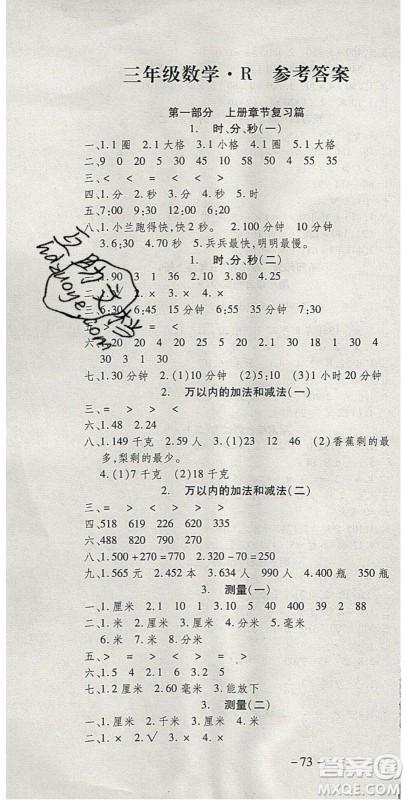 三年级数学·R 参考答案
第一部分 上册章节复习篇
1. 时、分、秒(一)
一、1.1圈 2.1大格 3.1小格 4.1圈 5.1大格
二、9 0 20 5 30 45 10 50 58
三、> < = > > <
四、1.分 2.秒 3.时 4.秒 5.时
五、7:00 7:30 7:50 8:00
六、1.小兰跑得快,快2秒。 2.100分钟 10分钟
3.6:30 4.7:30 5.兵兵最快,明明最慢。
1. 时、分、秒(二)
一、1.90 3 1 36 2.80 3.20 4.25
二、× ×
三、> < = > <
五、6:30;6:55;7:35
六、5:20 20 4:10 20 15 30 18 30 4
30 3 1 30
七、1.30 2.(1)10 (2)5;10 3.(1)1小时20分钟
2. 万以内的加法和减法(一)
三、= > < =
六、1.48 2.24
八、1.149千克 2.29人 3.(1)23 12 46 (2)香蕉剩的最多,梨剩的最少。
4.(1)7千克 (2)18千克
2. 万以内的加法和减法(二)
三、> = > < < >
五、518 619 226 331 684
六、520 488
八、1.500+270=770 2.810-70=740
九、1.565元 2.45元 3.634人 990人 4.400瓶 350瓶
3. 测量(一)
一、1.厘米 2.厘米 3.10 1 4.分米 5.毫米
6.米 7.米 8.分米
五、> = > < > <
六、1.5 4.5 2.2
七、2.60毫米 3.1米 4.能放下
3. 测量(二)
一、1.毫米 2.分米 3.厘米 4.米
二、1.× 2.√ 3.× 4.×
-73-